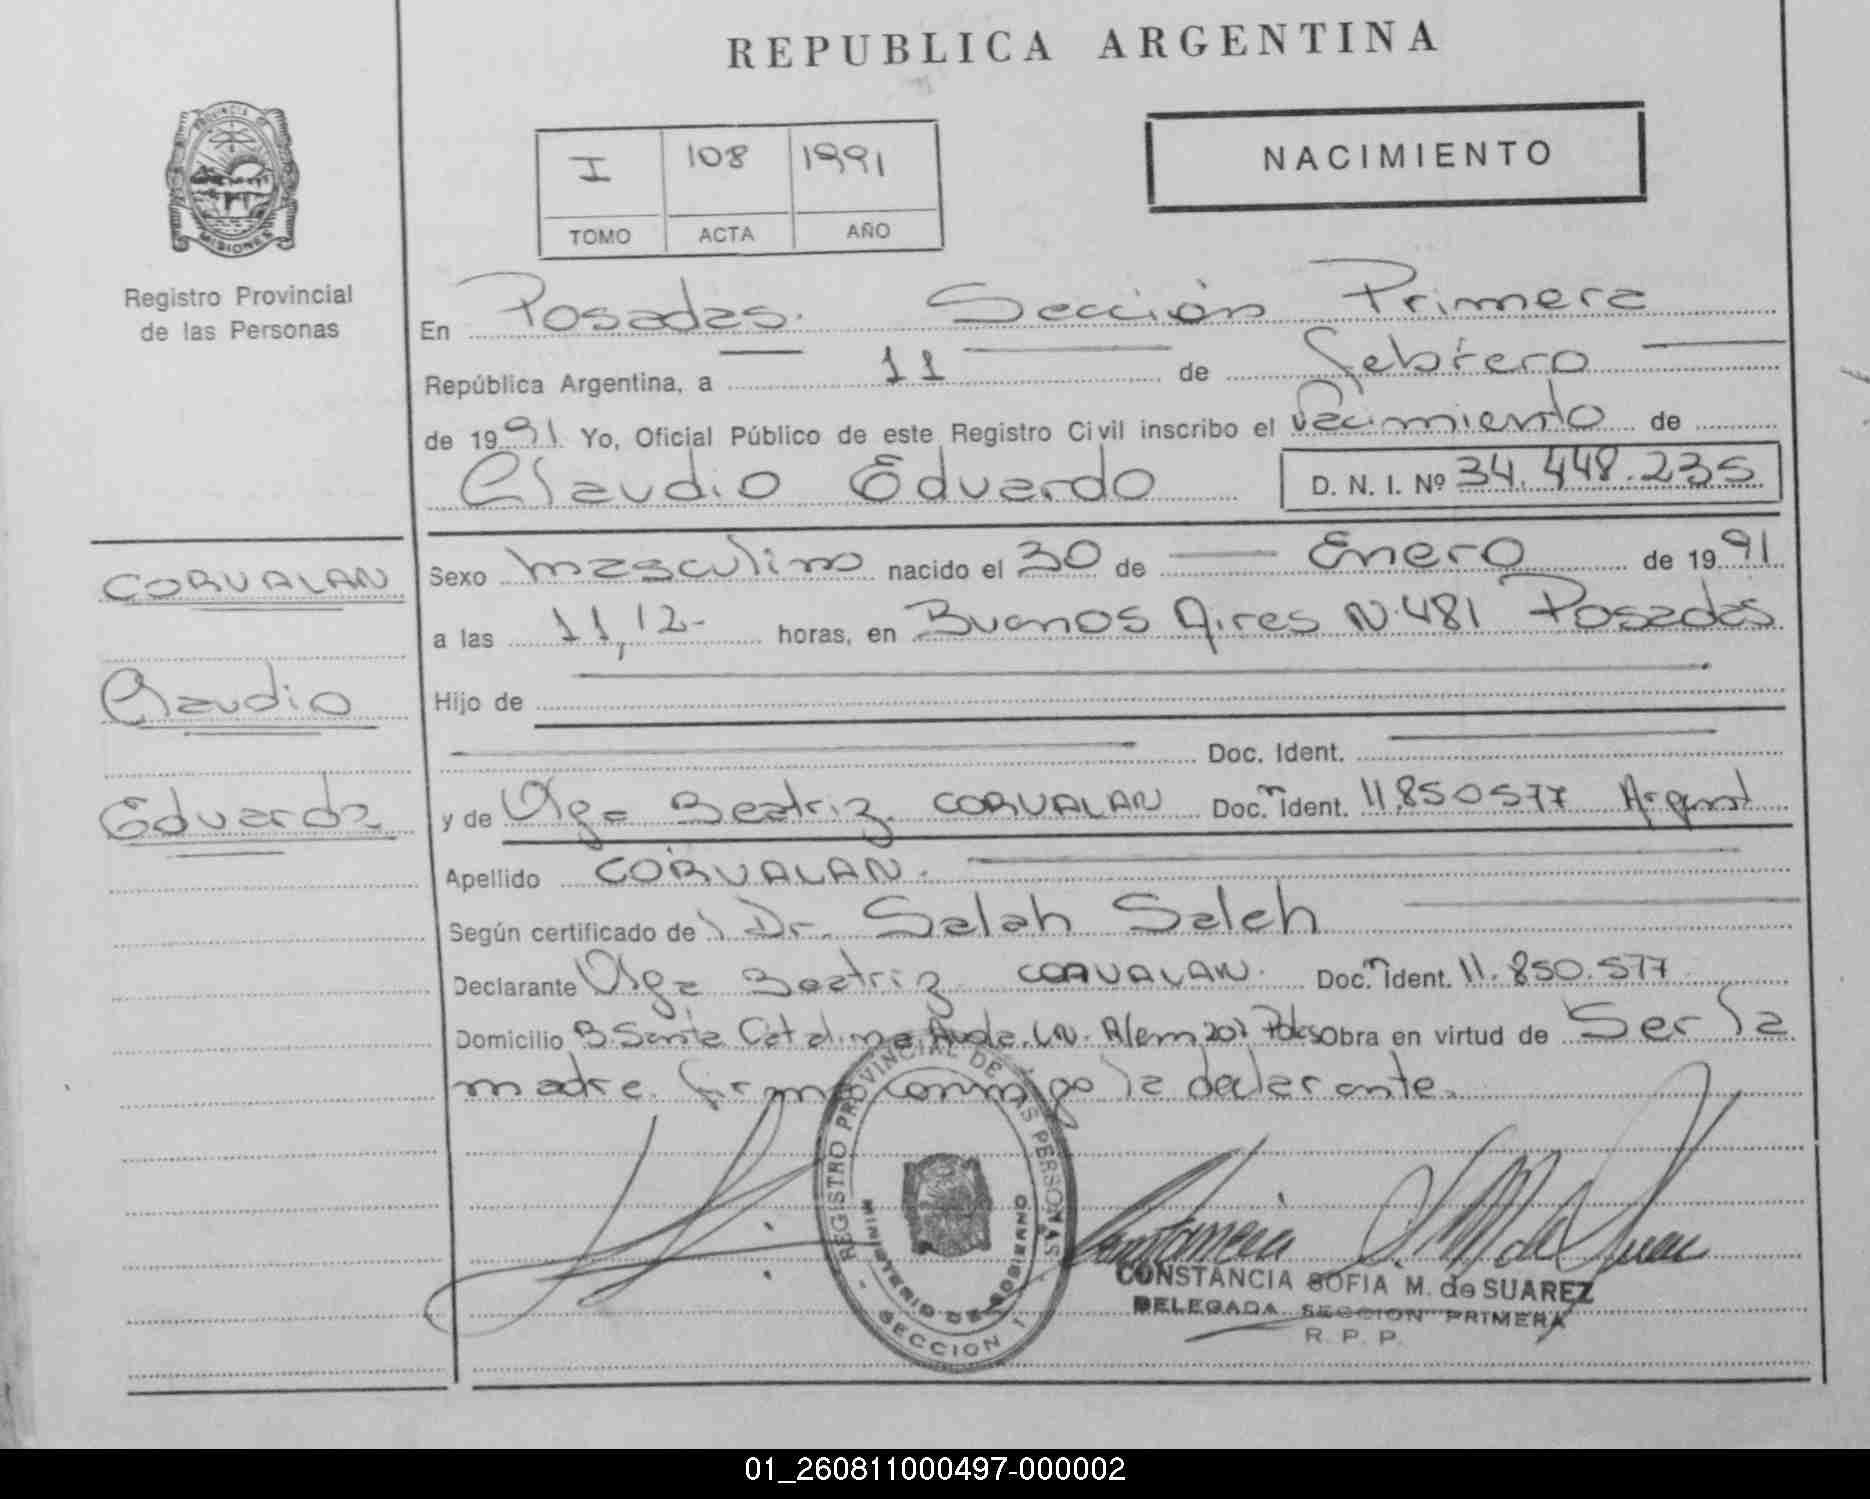 REPUBLICA ARGENTINA
PROVINCIA DE
MISIONES
Registro Provincial
de las Personas
I 108 1991
TOMO ACTA AÑO
NACIMIENTO
En Posadas. Sección Primera
República Argentina, a 11 de febrero
de 1991 Yo, Oficial Público de este Registro Civil inscribo el nacimiento de
Claudio Eduardo D. N. I. Nº 34.448.235
CORVALAN
Claudio
Eduardo
Sexo masculino nacido el 30 de Enero de 1991
a las 11,12- horas, en Buenos Aires N·481 Posadas
Hijo de
Doc. Ident.
y de Olga Beatriz CORVALAN Doc. Ident. 11.850577 Argent
Apellido CORVALAN.
Según certificado de Dr. Salah Saleh
Declarante Olga Beatriz CORVALAN. Doc. Ident. 11.850.577
Domicilio B. Santa Catalina Avda. L.N. Alem 201 Pdas Obra en virtud de Ser la
madre. firma conmigo la declarante.
REGISTRO PROVINCIAL DE LAS PERSONAS
MINISTERIO DE GOBIERNO
SECCION 1
CONSTANCIA SOFIA M. de SUAREZ
DELEGADA SECCION PRIMERA
R. P. P.
01_260811000497-000002